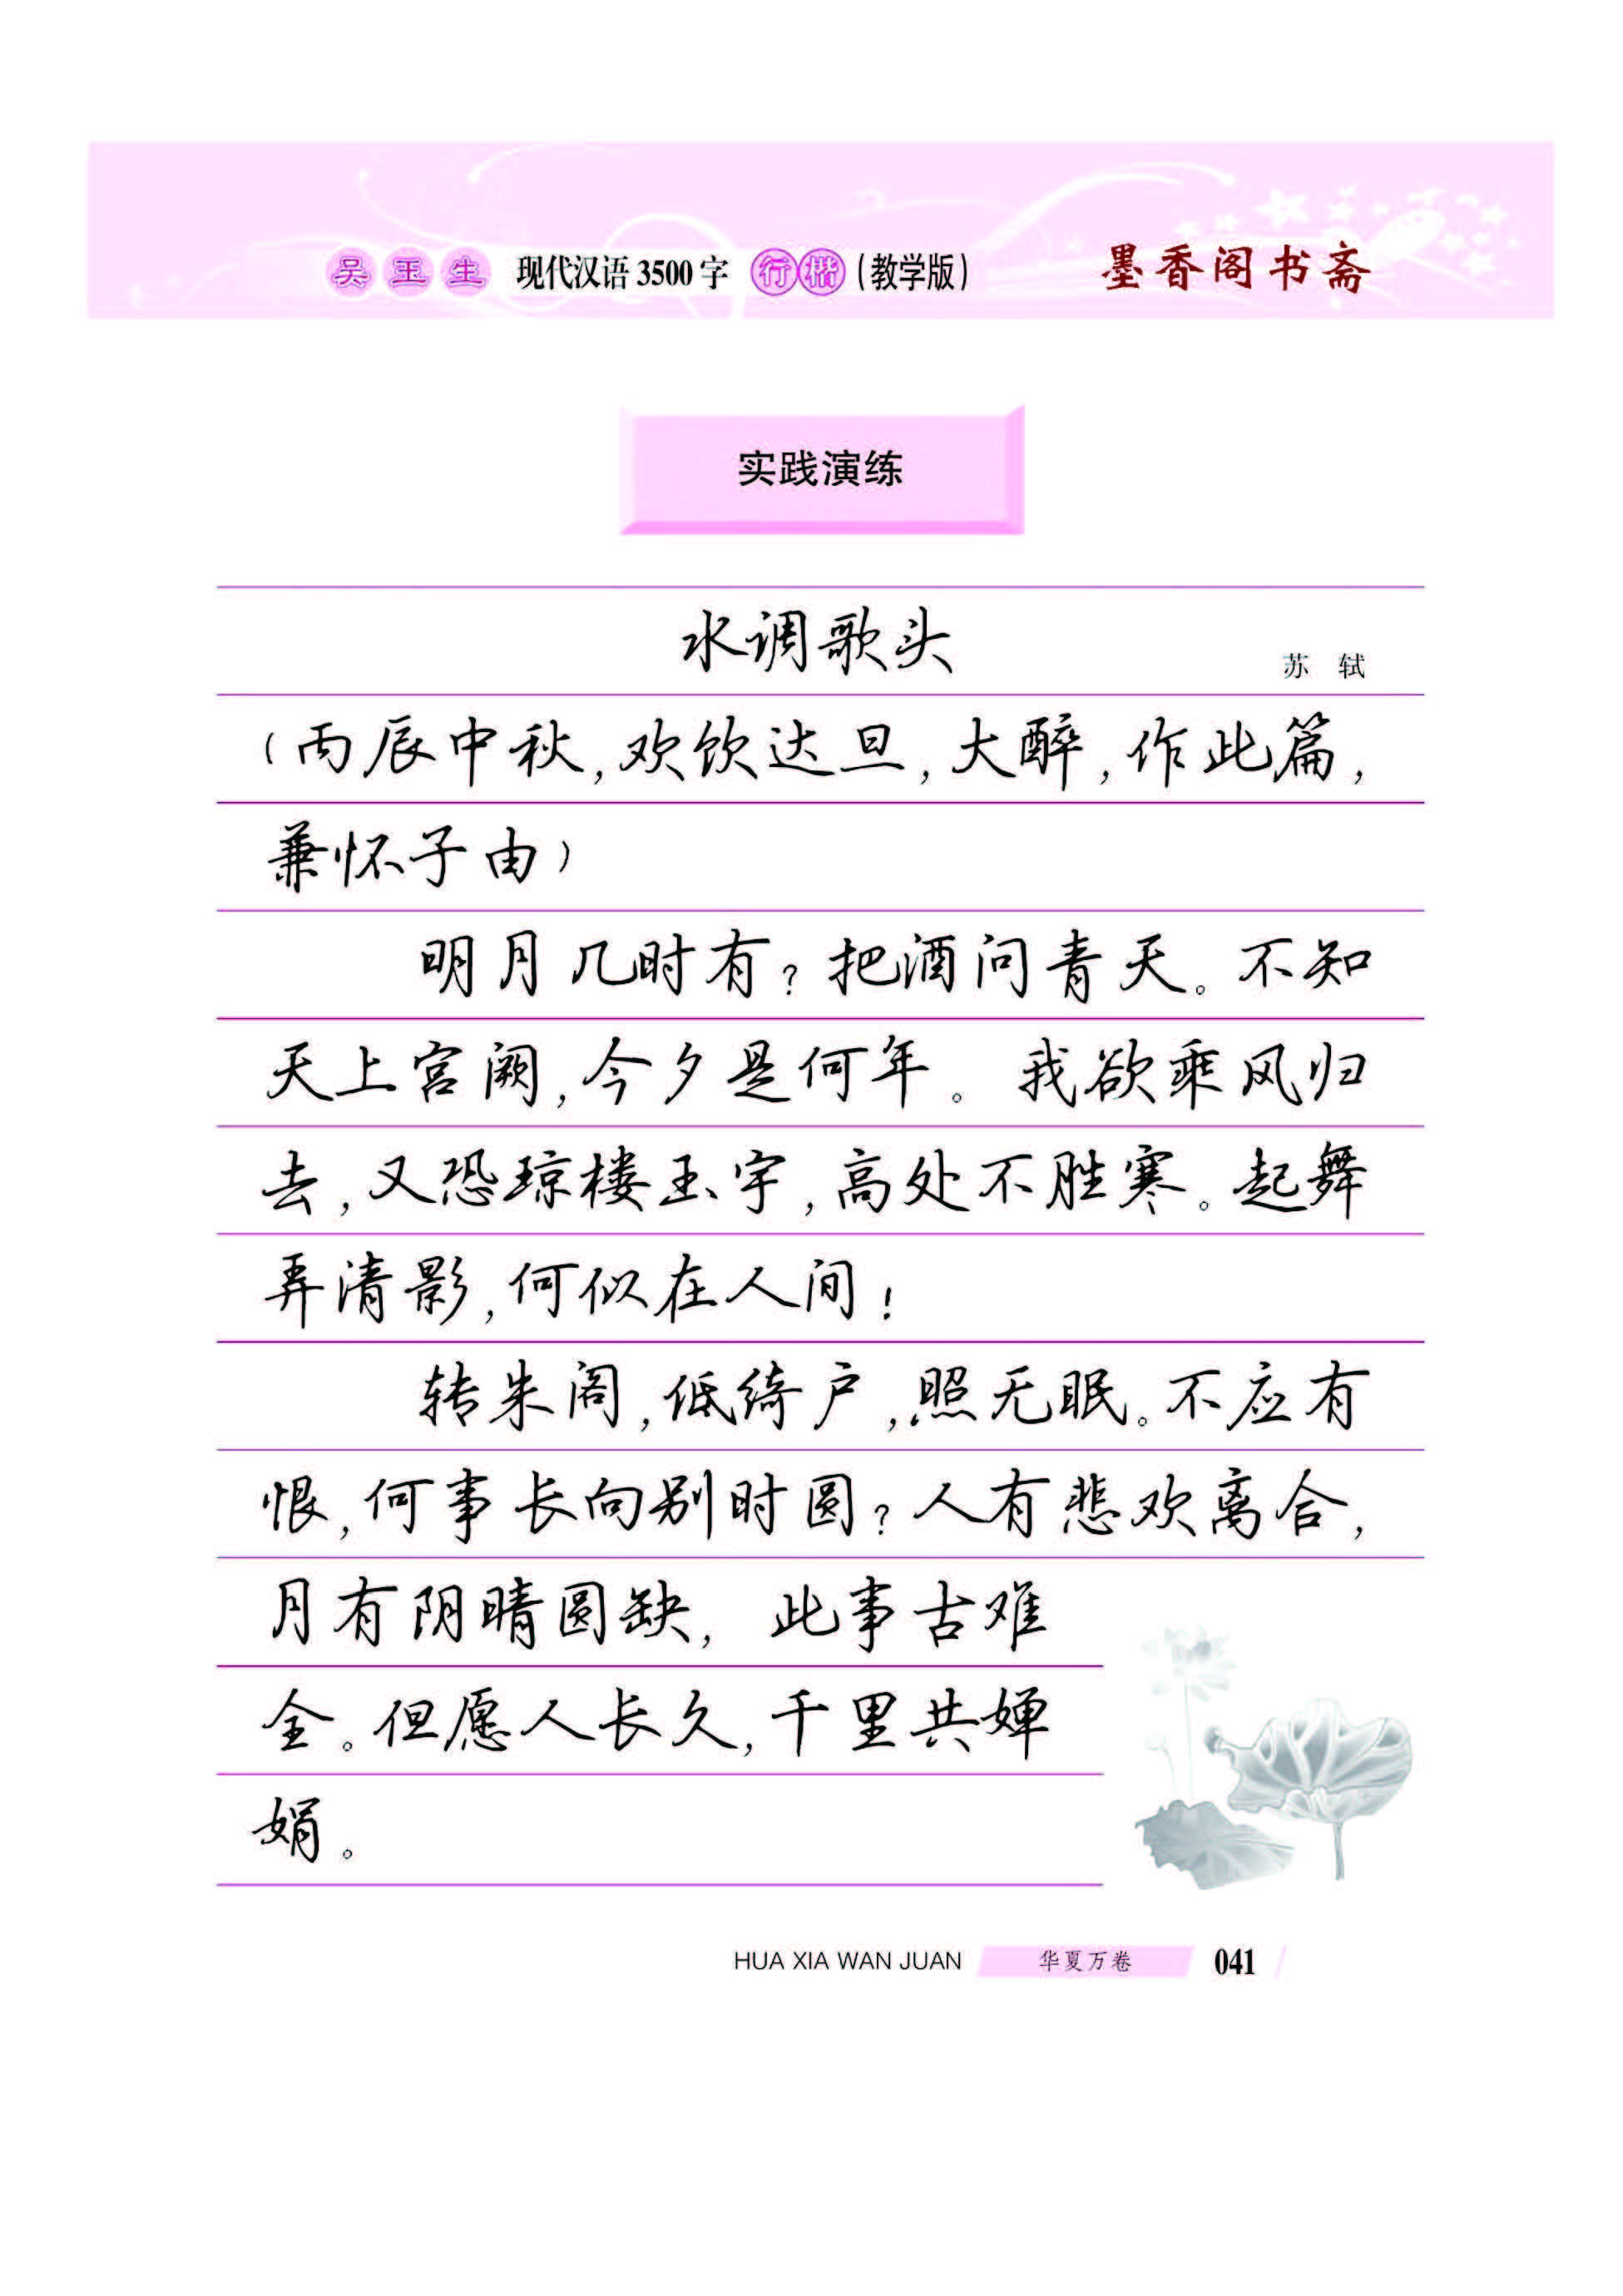 吴玉生 现代汉语3500字 行楷(教学版) 墨香阁书斋
实践演练
水调歌头
苏 轼
(丙辰中秋,欢饮达旦,大醉,作此篇,
兼怀子由)
明月几时有?把酒问青天。不知
天上宫阙,今夕是何年。我欲乘风归
去,又恐琼楼玉宇,高处不胜寒。起舞
弄清影,何似在人间!
转朱阁,低绮户,照无眠。不应有
恨,何事长向别时圆?人有悲欢离合,
月有阴晴圆缺,此事古难
全。但愿人长久,千里共婵
娟。
HUA XIA WAN JUAN 华夏万卷 041